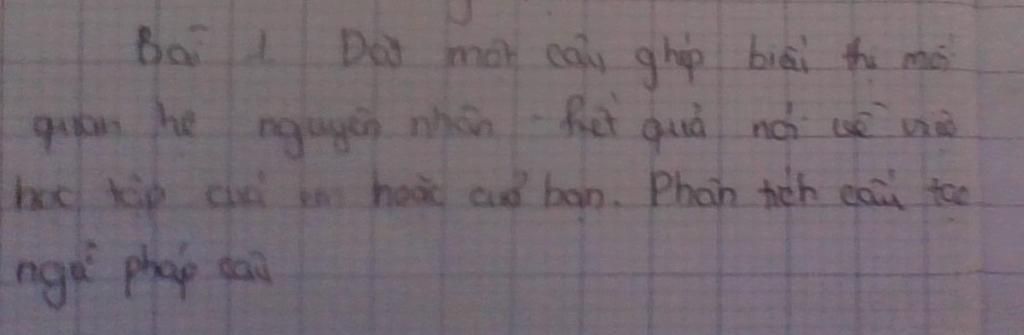 Bài 1 Đặt một câu ghép biểu thị mối
quan hệ nguyên nhân - kết quả nói về việc
học tập của em hoặc của bạn. Phân tích cấu tạo
ngữ pháp câu